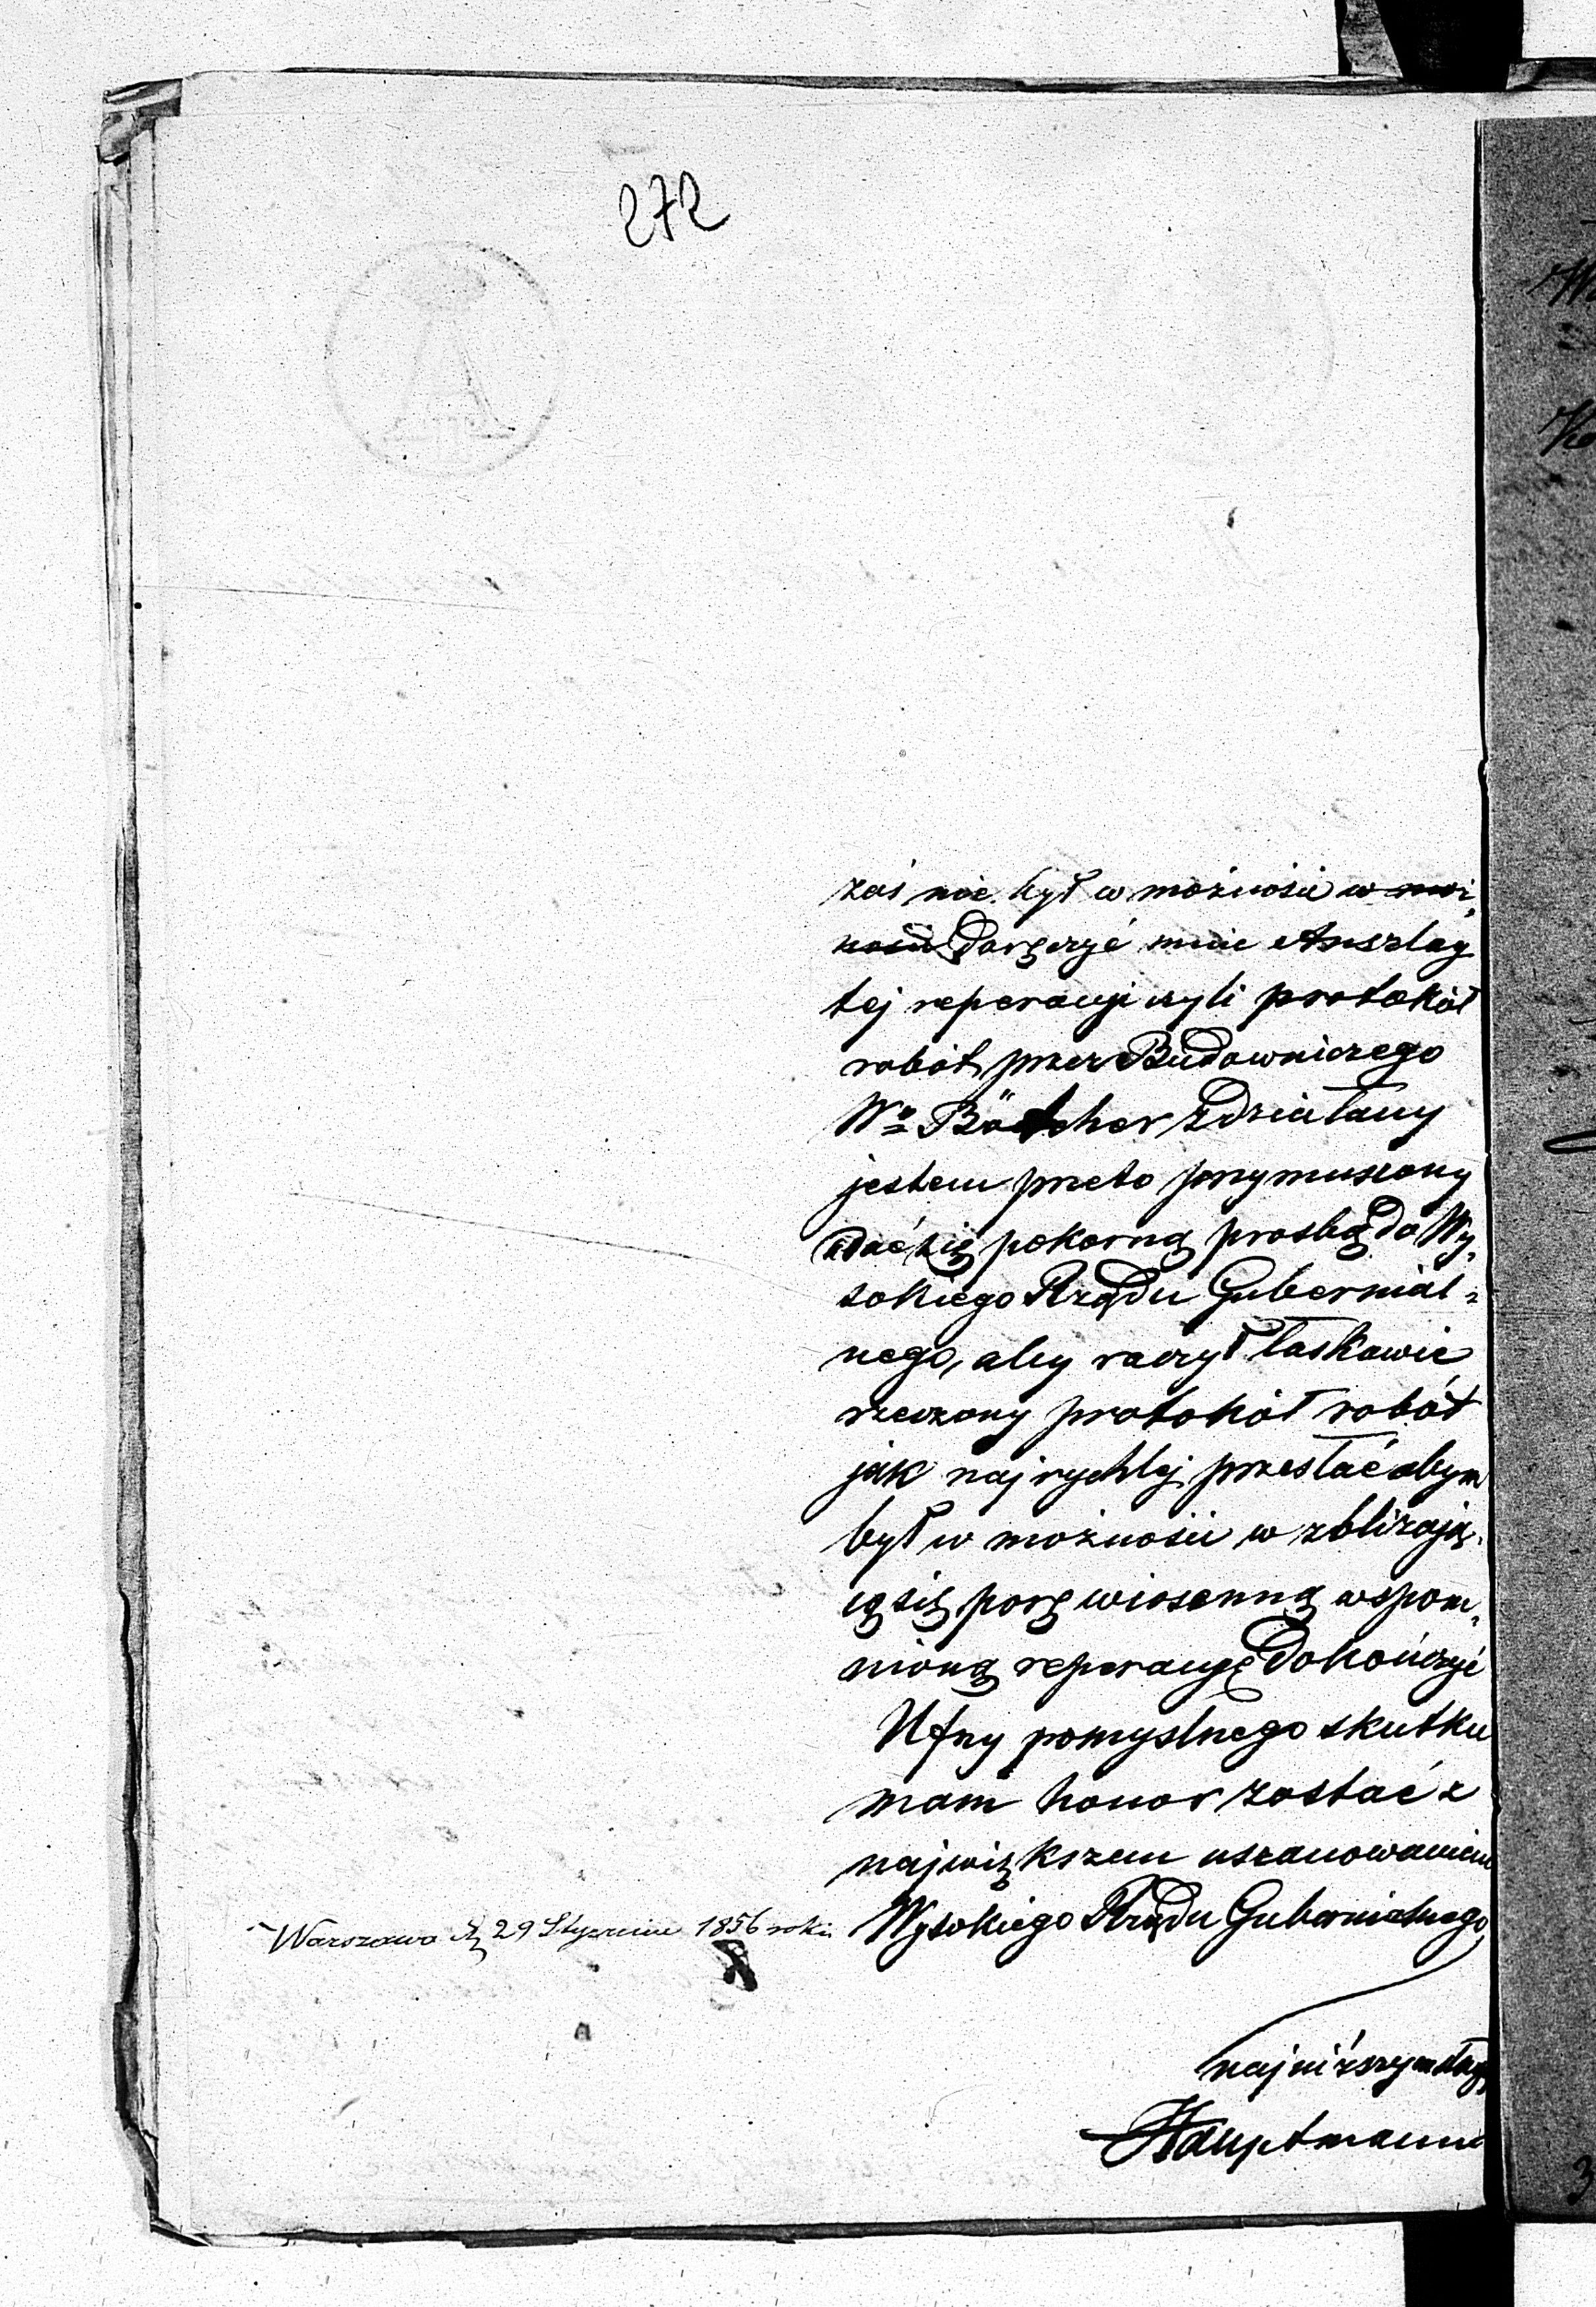 272
zaś nie był w możności w mo¿
ności Doręczyć mnie Anszlag
tej reperacyi czyli protokół
robót przez Budowniczego
Wº Bötcher zdziałany
jestem przeto przymuszony
udać się pokorną prośbą do Wy„
sokiego Rządu Gubernial„
nego, aby raczył łaskawie
rzeczony protokół robót
jak najrychlej przesłać abym
był w możności w zbliżają„
cą się porę wiosenną wspom„
nioną reperacyę Dokończyć
Ufny pomyslnego skutku
mam honor zostać z
największem uszanowaniem
Wysokiego Rządu Gubernialnego
Warszawa d. 29 Stycznia 1856 roku
najniższym sługą
Hauptmann